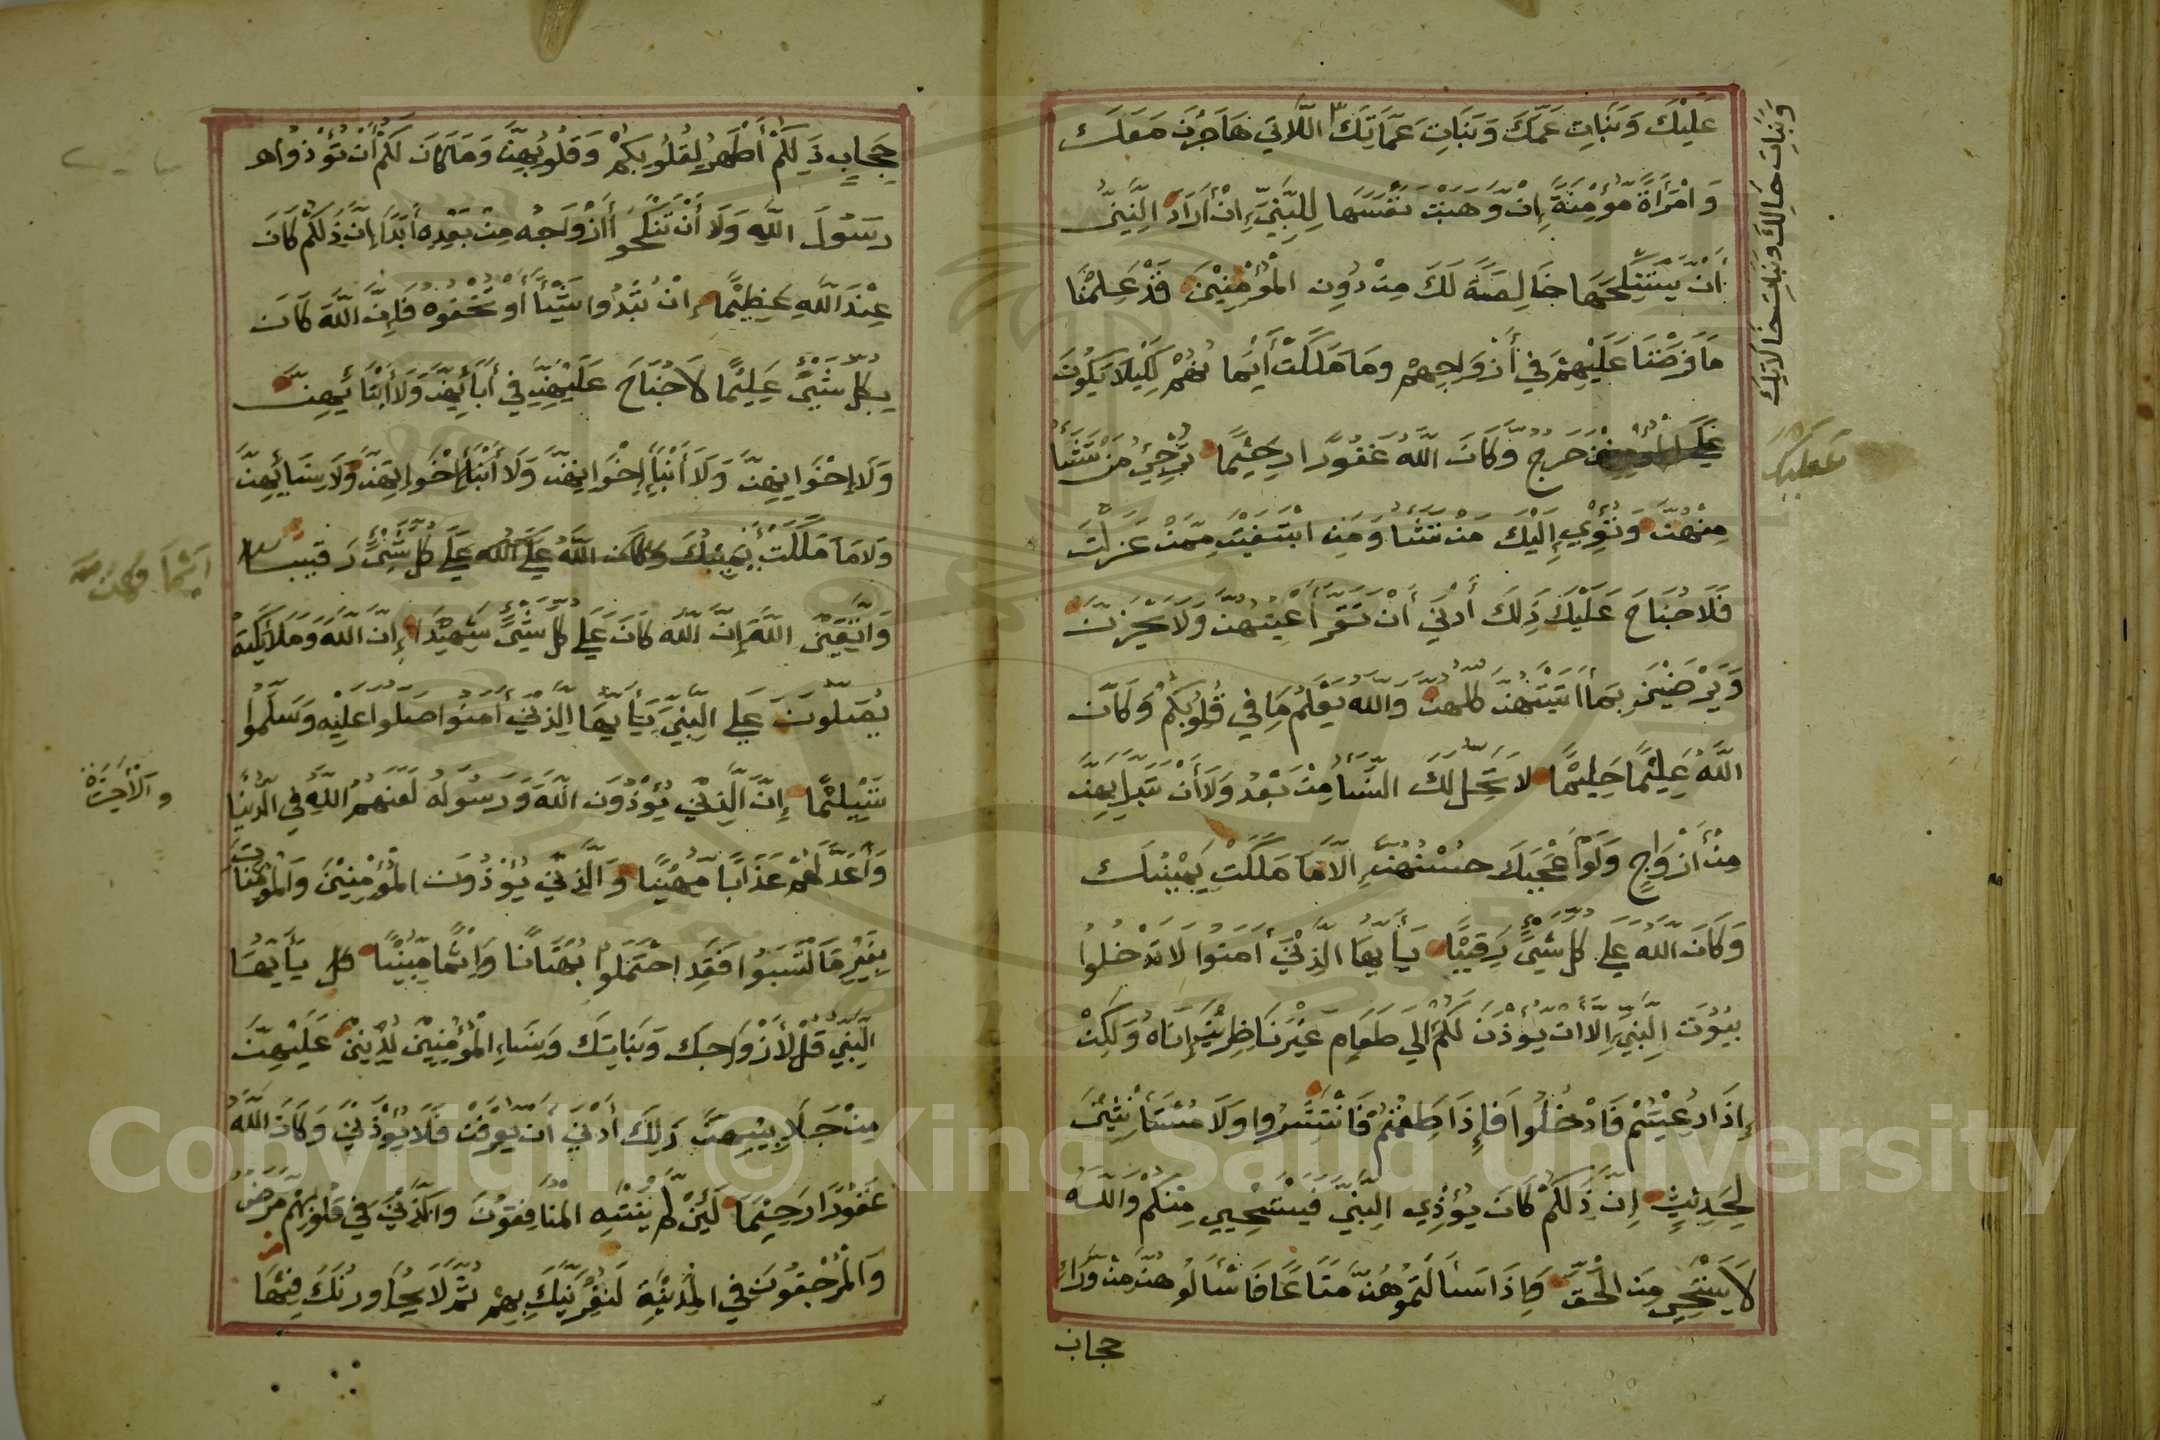 عَلَيْكَ وَبَنَاتِ عَمِّكَ وَبَنَاتِ عَمَّاتِكَ اللَّاتِي هَاجَرْنَ مَعَكَ
وَبَنَاتِ خَالِكَ وَبَنَاتِ خَالَاتِكَ
وَامْرَأَةً مُؤْمِنَةً إِنْ وَهَبَتْ نَفْسَهَا لِلنَّبِيِّ إِنْ أَرَادَ النَّبِيُّ
أَنْ يَسْتَنْكِحَهَا خَالِصَةً لَكَ مِنْ دُونِ الْمُؤْمِنِينَ قَدْ عَلِمْنَا
مَا فَرَضْنَا عَلَيْهِمْ فِي أَزْوَاجِهِمْ وَمَا مَلَكَتْ أَيْمَانُهُمْ لِكَيْلَا يَكُونَ
عَلَيْكَ
حَرَجٌ وَكَانَ اللَّهُ غَفُورًا رَحِيمًا تُرْجِي مَنْ تَشَاءُ
مِنْهُنَّ وَتُؤْوِي إِلَيْكَ مَنْ تَشَاءُ وَمَنِ ابْتَغَيْتَ مِمَّنْ عَزَلْتَ
فَلَا جُنَاحَ عَلَيْكَ ذَلِكَ أَدْنَى أَنْ تَقَرَّ أَعْيُنُهُنَّ وَلَا يَحْزَنَّ
وَيَرْضَيْنَ بِمَا آتَيْتَهُنَّ كُلُّهُنَّ وَاللَّهُ يَعْلَمُ مَا فِي قُلُوبِكُمْ وَكَانَ
اللَّهُ عَلِيمًا حَلِيمًا لَا يَحِلُّ لَكَ النِّسَاءُ مِنْ بَعْدُ وَلَا أَنْ تَبَدَّلَ بِهِنَّ
مِنْ أَزْوَاجٍ وَلَوْ أَعْجَبَكَ حُسْنُهُنَّ إِلَّا مَا مَلَكَتْ يَمِينُكَ
وَكَانَ اللَّهُ عَلَى كُلِّ شَيْءٍ رَقِيبًا يَا أَيُّهَا الَّذِينَ آمَنُوا لَا تَدْخُلُوا
بُيُوتَ النَّبِيِّ إِلَّا أَنْ يُؤْذَنَ لَكُمْ إِلَى طَعَامٍ غَيْرَ نَاظِرِينَ إِنَاهُ وَلَكِنْ
إِذَا دُعِيتُمْ فَادْخُلُوا فَإِذَا طَعِمْتُمْ فَانْتَشِرُوا وَلَا مُسْتَأْنِسِينَ
لِحَدِيثٍ إِنَّ ذَلِكُمْ كَانَ يُؤْذِي النَّبِيَّ فَيَسْتَحْيِي مِنْكُمْ وَاللَّهُ
لَا يَسْتَحْيِي مِنَ الْحَقِّ وَإِذَا سَأَلْتُمُوهُنَّ مَتَاعًا فَاسْأَلُوهُنَّ مِنْ وَرَاءِ
حجاب
حِجَابٍ ذَلِكُمْ أَطْهَرُ لِقُلُوبِكُمْ وَقُلُوبِهِنَّ وَمَا كَانَ لَكُمْ أَنْ تُؤْذُوا
رَسُولَ اللَّهِ وَلَا أَنْ تَنْكِحُوا أَزْوَاجَهُ مِنْ بَعْدِهِ أَبَدًا إِنَّ ذَلِكُمْ كَانَ
عِنْدَ اللَّهِ عَظِيمًا إِنْ تُبْدُوا شَيْئًا أَوْ تُخْفُوهُ فَإِنَّ اللَّهَ كَانَ
بِكُلِّ شَيْءٍ عَلِيمًا لَا جُنَاحَ عَلَيْهِنَّ فِي آبَائِهِنَّ وَلَا أَبْنَائِهِنَّ
وَلَا إِخْوَانِهِنَّ وَلَا أَبْنَاءِ إِخْوَانِهِنَّ وَلَا أَبْنَاءِ إِخْوَاتِهِنَّ وَلَا نِسَائِهِنَّ
وَلَا مَا مَلَكَتْ يَمِينُكَ وَكَانَ اللَّهُ عَلَى كُلِّ شَيْءٍ رَقِيبًا
وَاتَّقِينَ اللَّهَ إِنَّ اللَّهَ كَانَ عَلَى كُلِّ شَيْءٍ شَهِيدًا إِنَّ اللَّهَ وَمَلَائِكَتَهُ
يُصَلُّونَ عَلَى النَّبِيِّ يَا أَيُّهَا الَّذِينَ آمَنُوا صَلُّوا عَلَيْهِ وَسَلِّمُوا
تَسْلِيمًا إِنَّ الَّذِينَ يُؤْذُونَ اللَّهَ وَرَسُولَهُ لَعَنَهُمُ اللَّهُ فِي الدُّنْيَا
وَالْآخِرَةِ
وَأَعَدَّ لَهُمْ عَذَابًا مُهِينًا وَالَّذِينَ يُؤْذُونَ الْمُؤْمِنِينَ وَالْمُؤْمِنَاتِ
بِغَيْرِ مَا اكْتَسَبُوا فَقَدِ احْتَمَلُوا بُهْتَانًا وَإِثْمًا مُبِينًا قل يَا أَيُّهَا
النَّبِيُّ قُلْ لِأَزْوَاجِكَ وَبَنَاتِكَ وَنِسَاءِ الْمُؤْمِنِينَ يُدْنِينَ عَلَيْهِنَّ
مِنْ جَلَابِيبِهِنَّ ذَلِكَ أَدْنَى أَنْ يُعْرَفْنَ فَلَا يُؤْذَيْنَ وَكَانَ اللَّهُ
غَفُورًا رَحِيمًا لَئِنْ لَمْ يَنْتَهِ الْمُنَافِقُونَ وَالَّذِينَ فِي قُلُوبِهِمْ مَرَضٌ
وَالْمُرْجِفُونَ فِي الْمَدِينَةِ لَنُغْرِيَنَّكَ بِهِمْ ثُمَّ لَا يُجَاوِرُونَكَ فِيهَا
Copyright © King Saud University